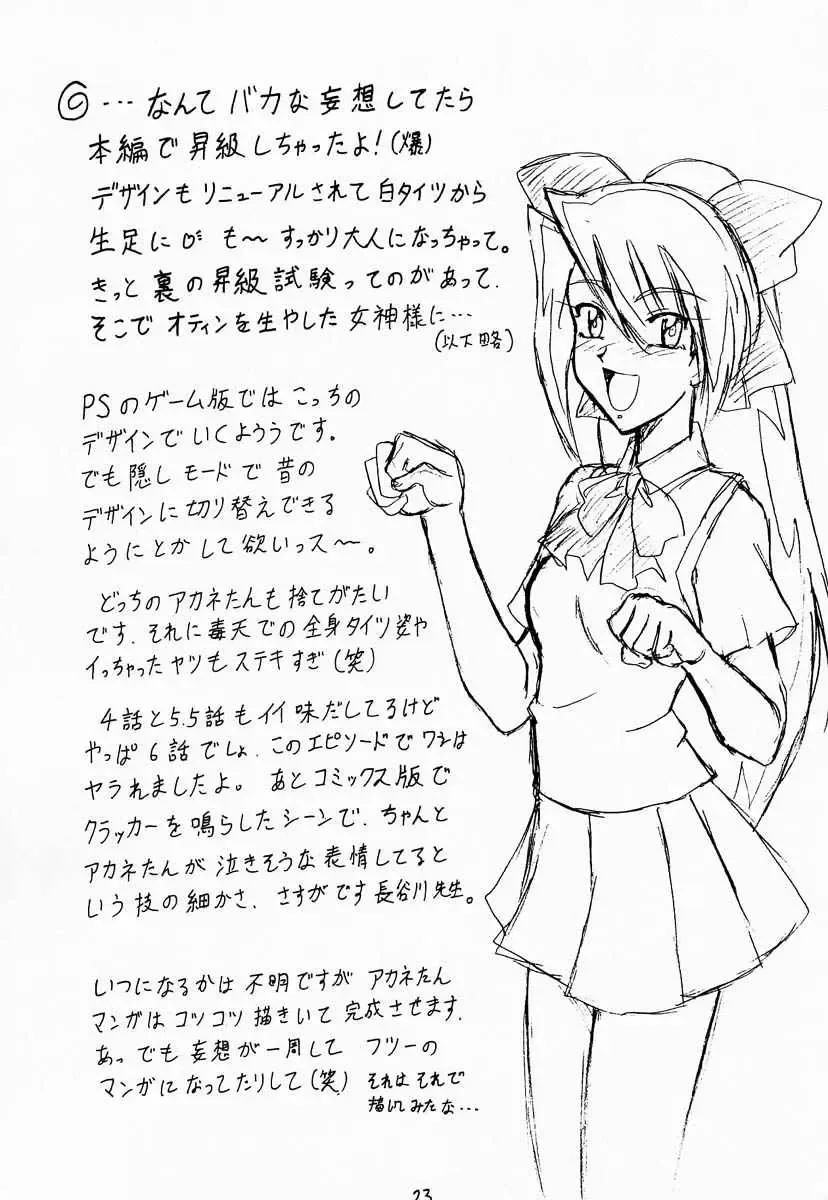 ◎ … なんて バカな妄想してたら
本編で昇級しちゃったよ！(爆)
デザインもリニューアルされて白タイツから
生足に も〜すっかり大人になっちゃって。
きっと裏の昇級試験ってのがあって、
そこで オティンを生やした女神様に…
(以下略)
PSのゲーム版では こっちの
デザインで いくようです。
でも隠しモードで 昔の
デザインに切り替えできる
ようにとかして欲いっス〜。
どっちのアカネたんも捨てがたい
です、それに毒天での全身タイツ姿や
イっちゃったヤツもステキすぎ(笑)
4話と5.5話もイイ味だしてるけど
やっぱ6話でしょ、このエピソードでワシは
ヤられましたよ。あとコミックス版で
クラッカーを鳴らしたシーンで、ちゃんと
アカネたんが泣きそうな表情してると
いう技の細かさ、さすがです長谷川先生。
いつになるかは 不明ですが アカネたん
マンガは コツコツ描きいて 完成させます、
あっでも妄想が一周して フツーの
マンガになってたりして(笑)
それはそれで
描いてみたな…
23